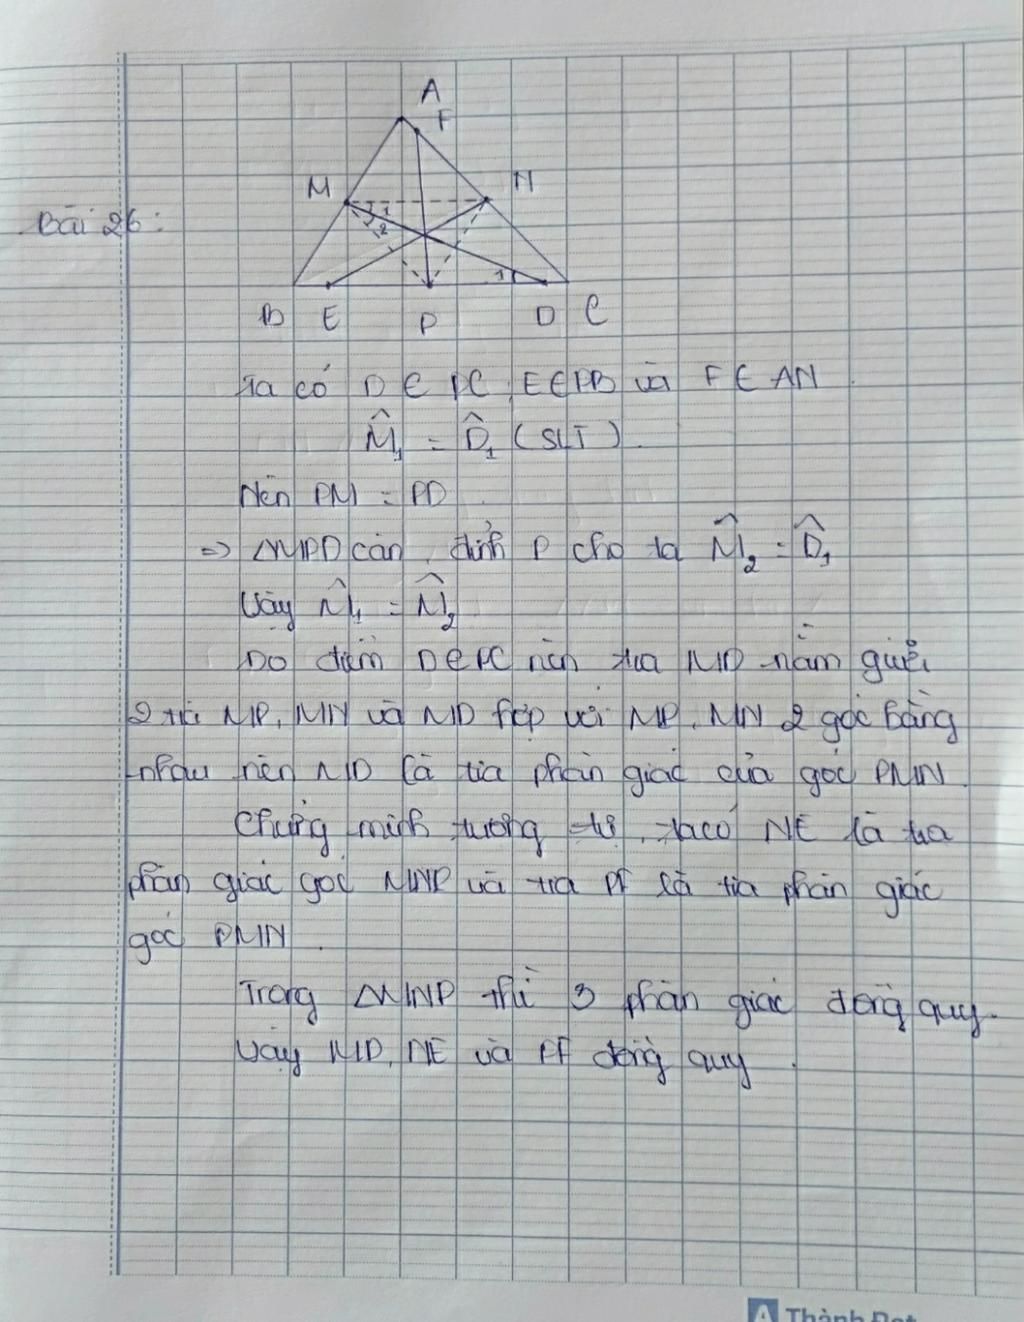 A
F
M N
Bài 26:
1
2
1
B E P D C
Ta có D ∈ PC, E ∈ PB và F ∈ AN.
M̂₁ = D̂₁ (SLT).
Nên PM = PD.
=> ΔMPD cân, đỉnh P cho ta M̂₂ = D̂₁
Vậy M̂₁ = M̂₂
Do điểm D ∈ PC nên tia MD nằm giữa
2 tia MP, MN và MD hợp với MP, MN 2 góc bằng
nhau nên MD là tia phân giác của góc PMN.
Chứng minh tương tự, ta có NE là tia
phân giác góc MNP và tia PF là tia phân giác
góc PMN.
Trong ΔMNP thì 3 phân giác đồng quy.
Vậy MD, NE và PF đồng quy.
A Thành Đạt